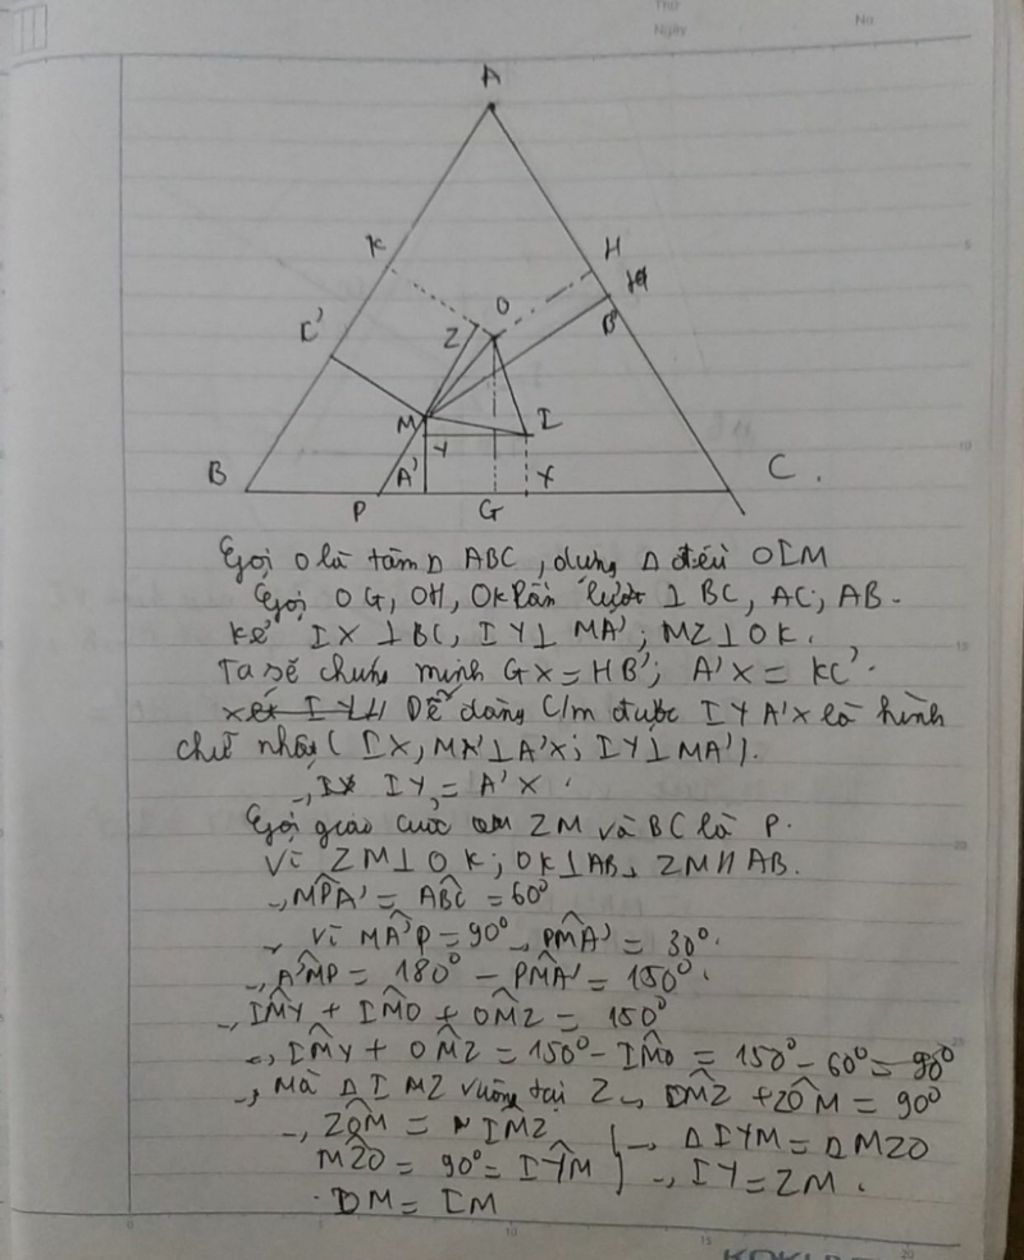 Thứ
Ngày
No.
A
K
H
C'
O
Z
B'
5
M
I
Y
10
B
A'
X
C
P
G
Gọi O là tâm △ ABC, dựng △ đều OIM
Gọi OG, OH, OK lần lượt ⊥ BC, AC, AB.
kẻ IX ⊥ BC, IY ⊥ MA'; MZ ⊥ OK.
15
Ta sẽ chứng minh GX = HB'; A'X = KC'.
Dễ dàng C/m được IYA'X là hình
chữ nhật (IX, MA' ⊥ A'X; IY ⊥ MA').
→ IY = A'X.
Gọi giao của ZM và BC là P.
20
Vì ZM ⊥ OK; OK ⊥ AB → ZM // AB.
→ MPA' = ABC = 60°
→ Vì MA'P = 90° → PMA' = 30°.
→ A'MP = 180° - PMA' = 150°.
→ IMY + IMO + OMZ = 150°
→ IMY + OMZ = 150° - IMO = 150° - 60° = 90°
→ Mà △ IMZ vuông tại Z → OMZ + ZOM = 90°
→ ZOM = IMZ
MZO = 90° = IYM } → △ IYM = △ MZO
→ IY = ZM.
OM = IM
0
5
10
15
20